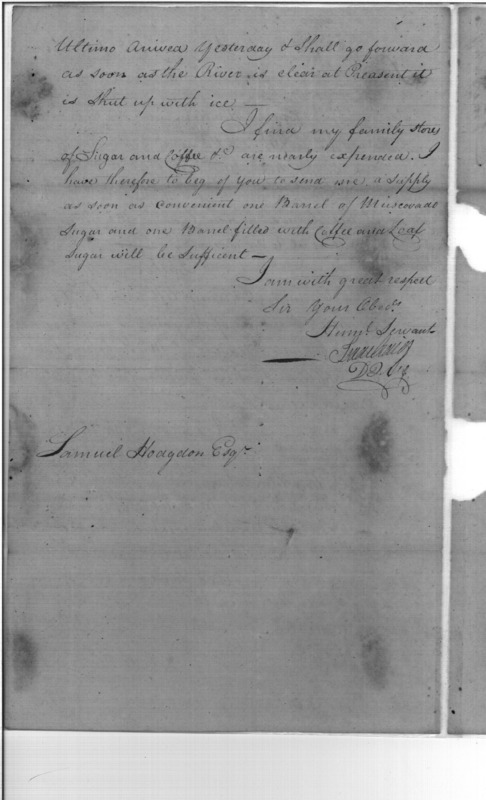 Ultimo Arived Yesterday & Shall go forward
as soon as the River is clear at Preasent it
is Shut up with ice —
I find my family stores
of Sugar and Coffee &c are nearly expended. I
have therefore to beg of you to send me a supply
as soon as convenient one Barrel of Muscovado
Sugar and one Barrel filled with Coffee and Loaf
Sugar will be sufficent —
I am with great respect
Sir Your Obedt
Humbl Servant
D.Q.
Samuel Hodgdon Esqr